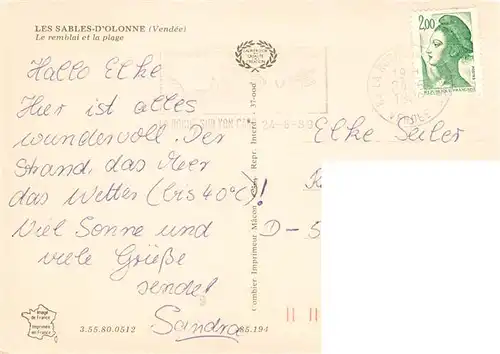 LES SABLES-D'OLONNE (Vendée)
Le remblai et la plage
Hallo Elke
Hier ist alles
wundervoll. Der
Strand, das Meer
das Wetter (bis 40°C)!
Viel Sonne und
viele Grüße
sendet
Sandra
Image de France
Imprimée en France
3.55.80.0512
85.194
Combier Imprimeur Mâcon
Repr. Interd.
37-0006
LA ROCHE-SUR-YON
24-6-89
2,00
REPUBLIQUE FRANCAISE
VENDEE
Elke Seiler
K
D-5